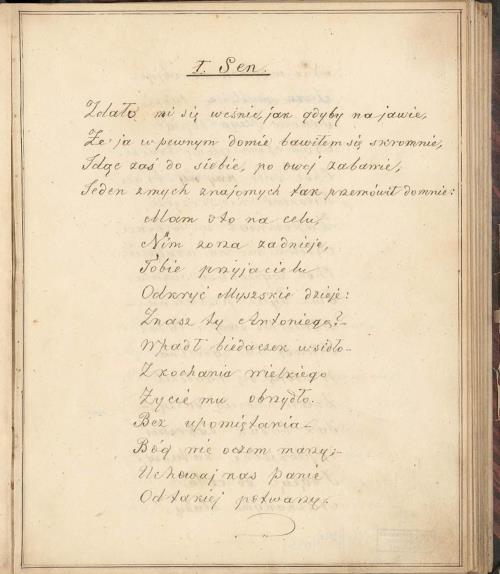 I. Sen.
Zdało mi się we śnie, jak gdyby na jawie,
Że ja w pewnym domie bawiłem się skromnie,
Idąc zaś do siebie, po owéj zabawie,
Jeden z mych znajomych tak przemówił do mnie:
Mam oto na celu,
Nim zorza zadnieje,
Tobie przyjacielu
Odkryć Myszskie dzieje:
Znasz ty Antoniego?—
Wpadł biedaczek w sidło—
Z kochania wielkiego
Życie mu obrzydło.
Bez upomiętania—
Bóg wie o czem marzy;—
Uchowaj nas Panie
Od takiej potwarzy.